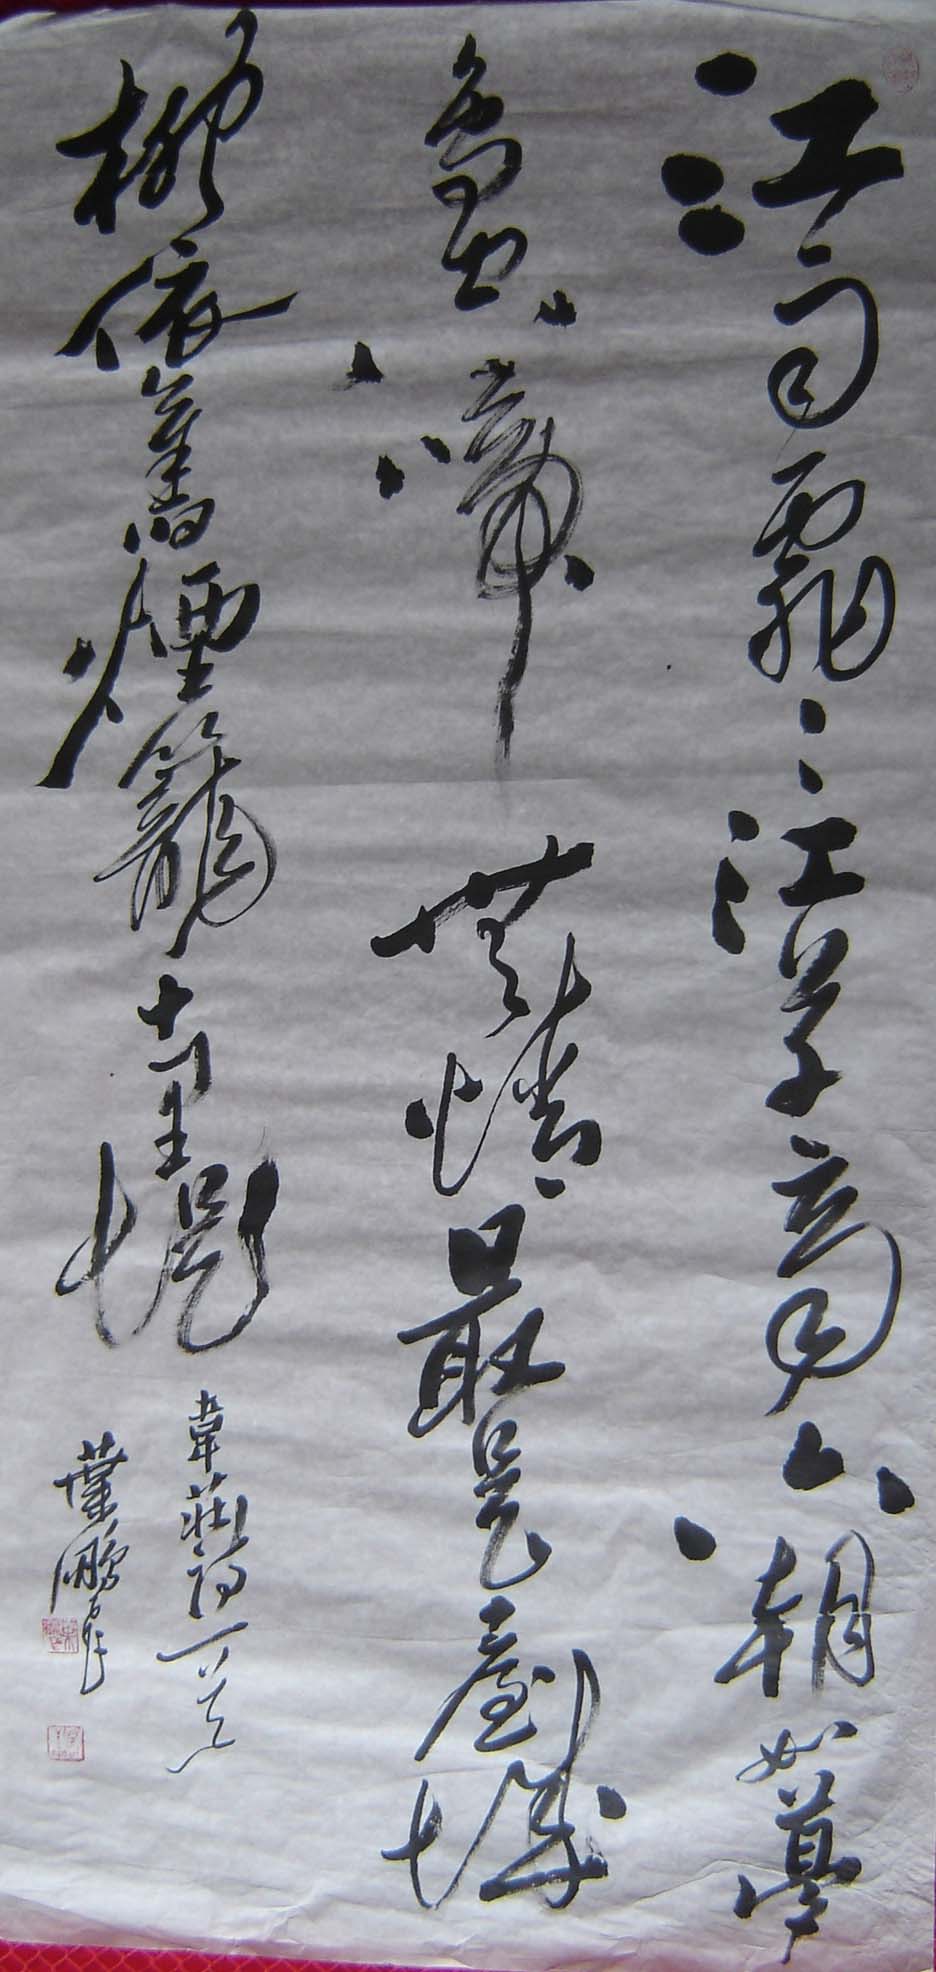 江雨霏〻江草齊六朝如夢
鳥空啼無情最是臺城
柳依舊煙籠十里堤
韋莊詩一首
葉鵬